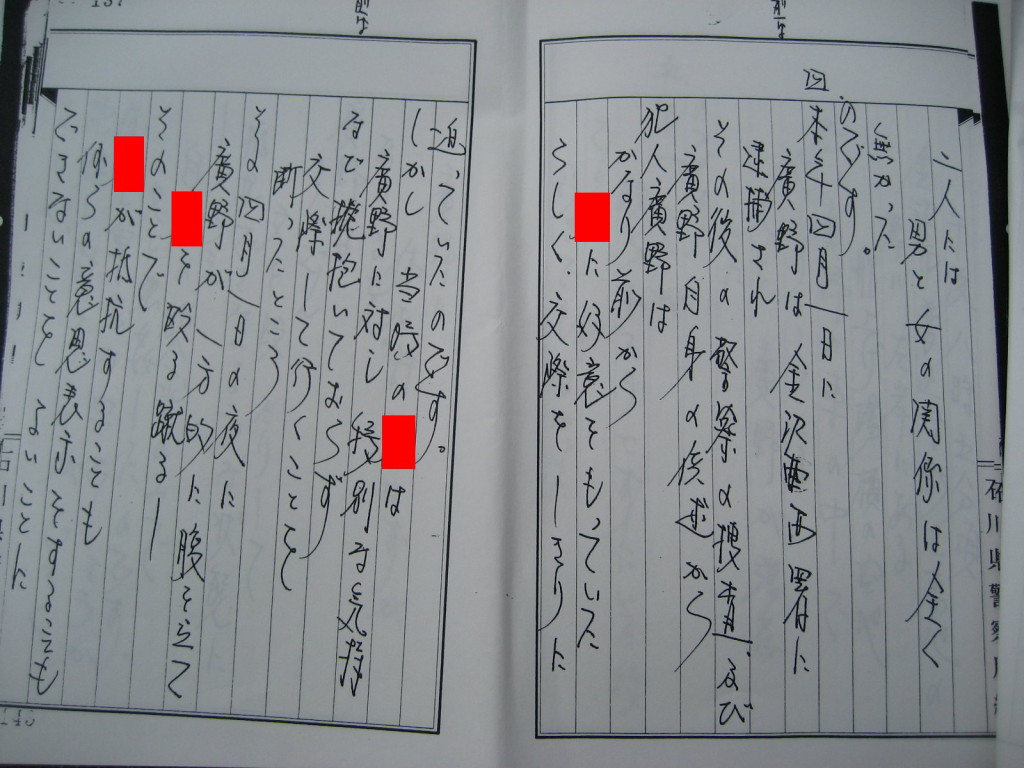 二人には
男と女の関係は全く
無かった
のです。
四、本年四月一日に
廣野は金沢西署に
逮捕され
その後の警察の捜査及び
廣野自身の供述から
犯人廣野は
かなり前から
に好意をもっていた
らしく、交際をしきりに
迫っていたのです。
しかし当時の は
廣野に対し特別な気持
など抱いておらず
交際して行くことを
断ったところ
その四月一日の夜に
廣野が一方的に腹を立て
を殴る蹴るし
そのことで
が抵抗することも
何らの意思表示をすることも
できないことを よいことに
石川県警察
137
140